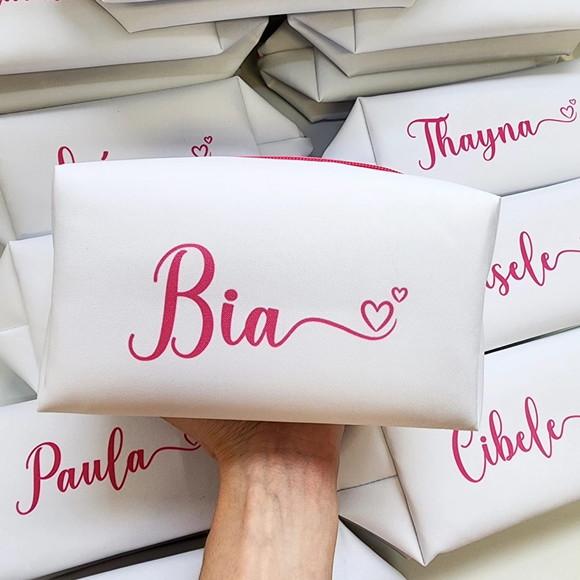 Thayna
Bia
Paula
Cibele